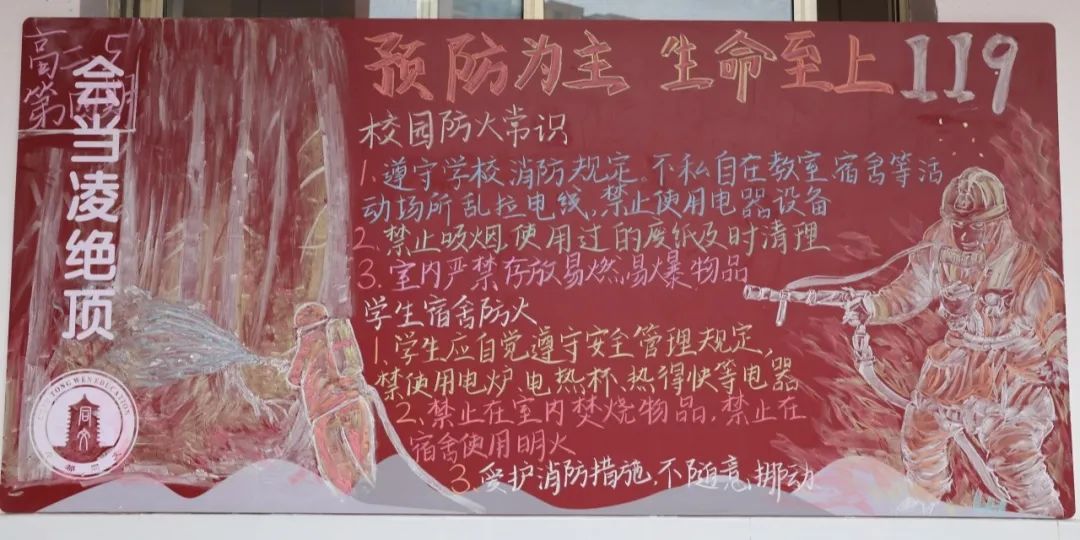 会当凌绝顶
高二
5
第
预防为主 生命至上 119
校园防火常识
1. 遵守学校消防规定、不私自在教室宿舍等活
动场所乱拉电线,禁止使用电器设备
2. 禁止吸烟,使用过的废纸及时清理
3. 室内严禁存放易燃易爆物品
学生宿舍防火
1. 学生应自觉遵守安全管理规定,
禁使用电炉、电热杯、热得快等电器
2. 禁止在室内焚烧物品,禁止在
宿舍使用明火
3. 爱护消防措施、不随意挪动
TONG WEN EDUCATION
同文